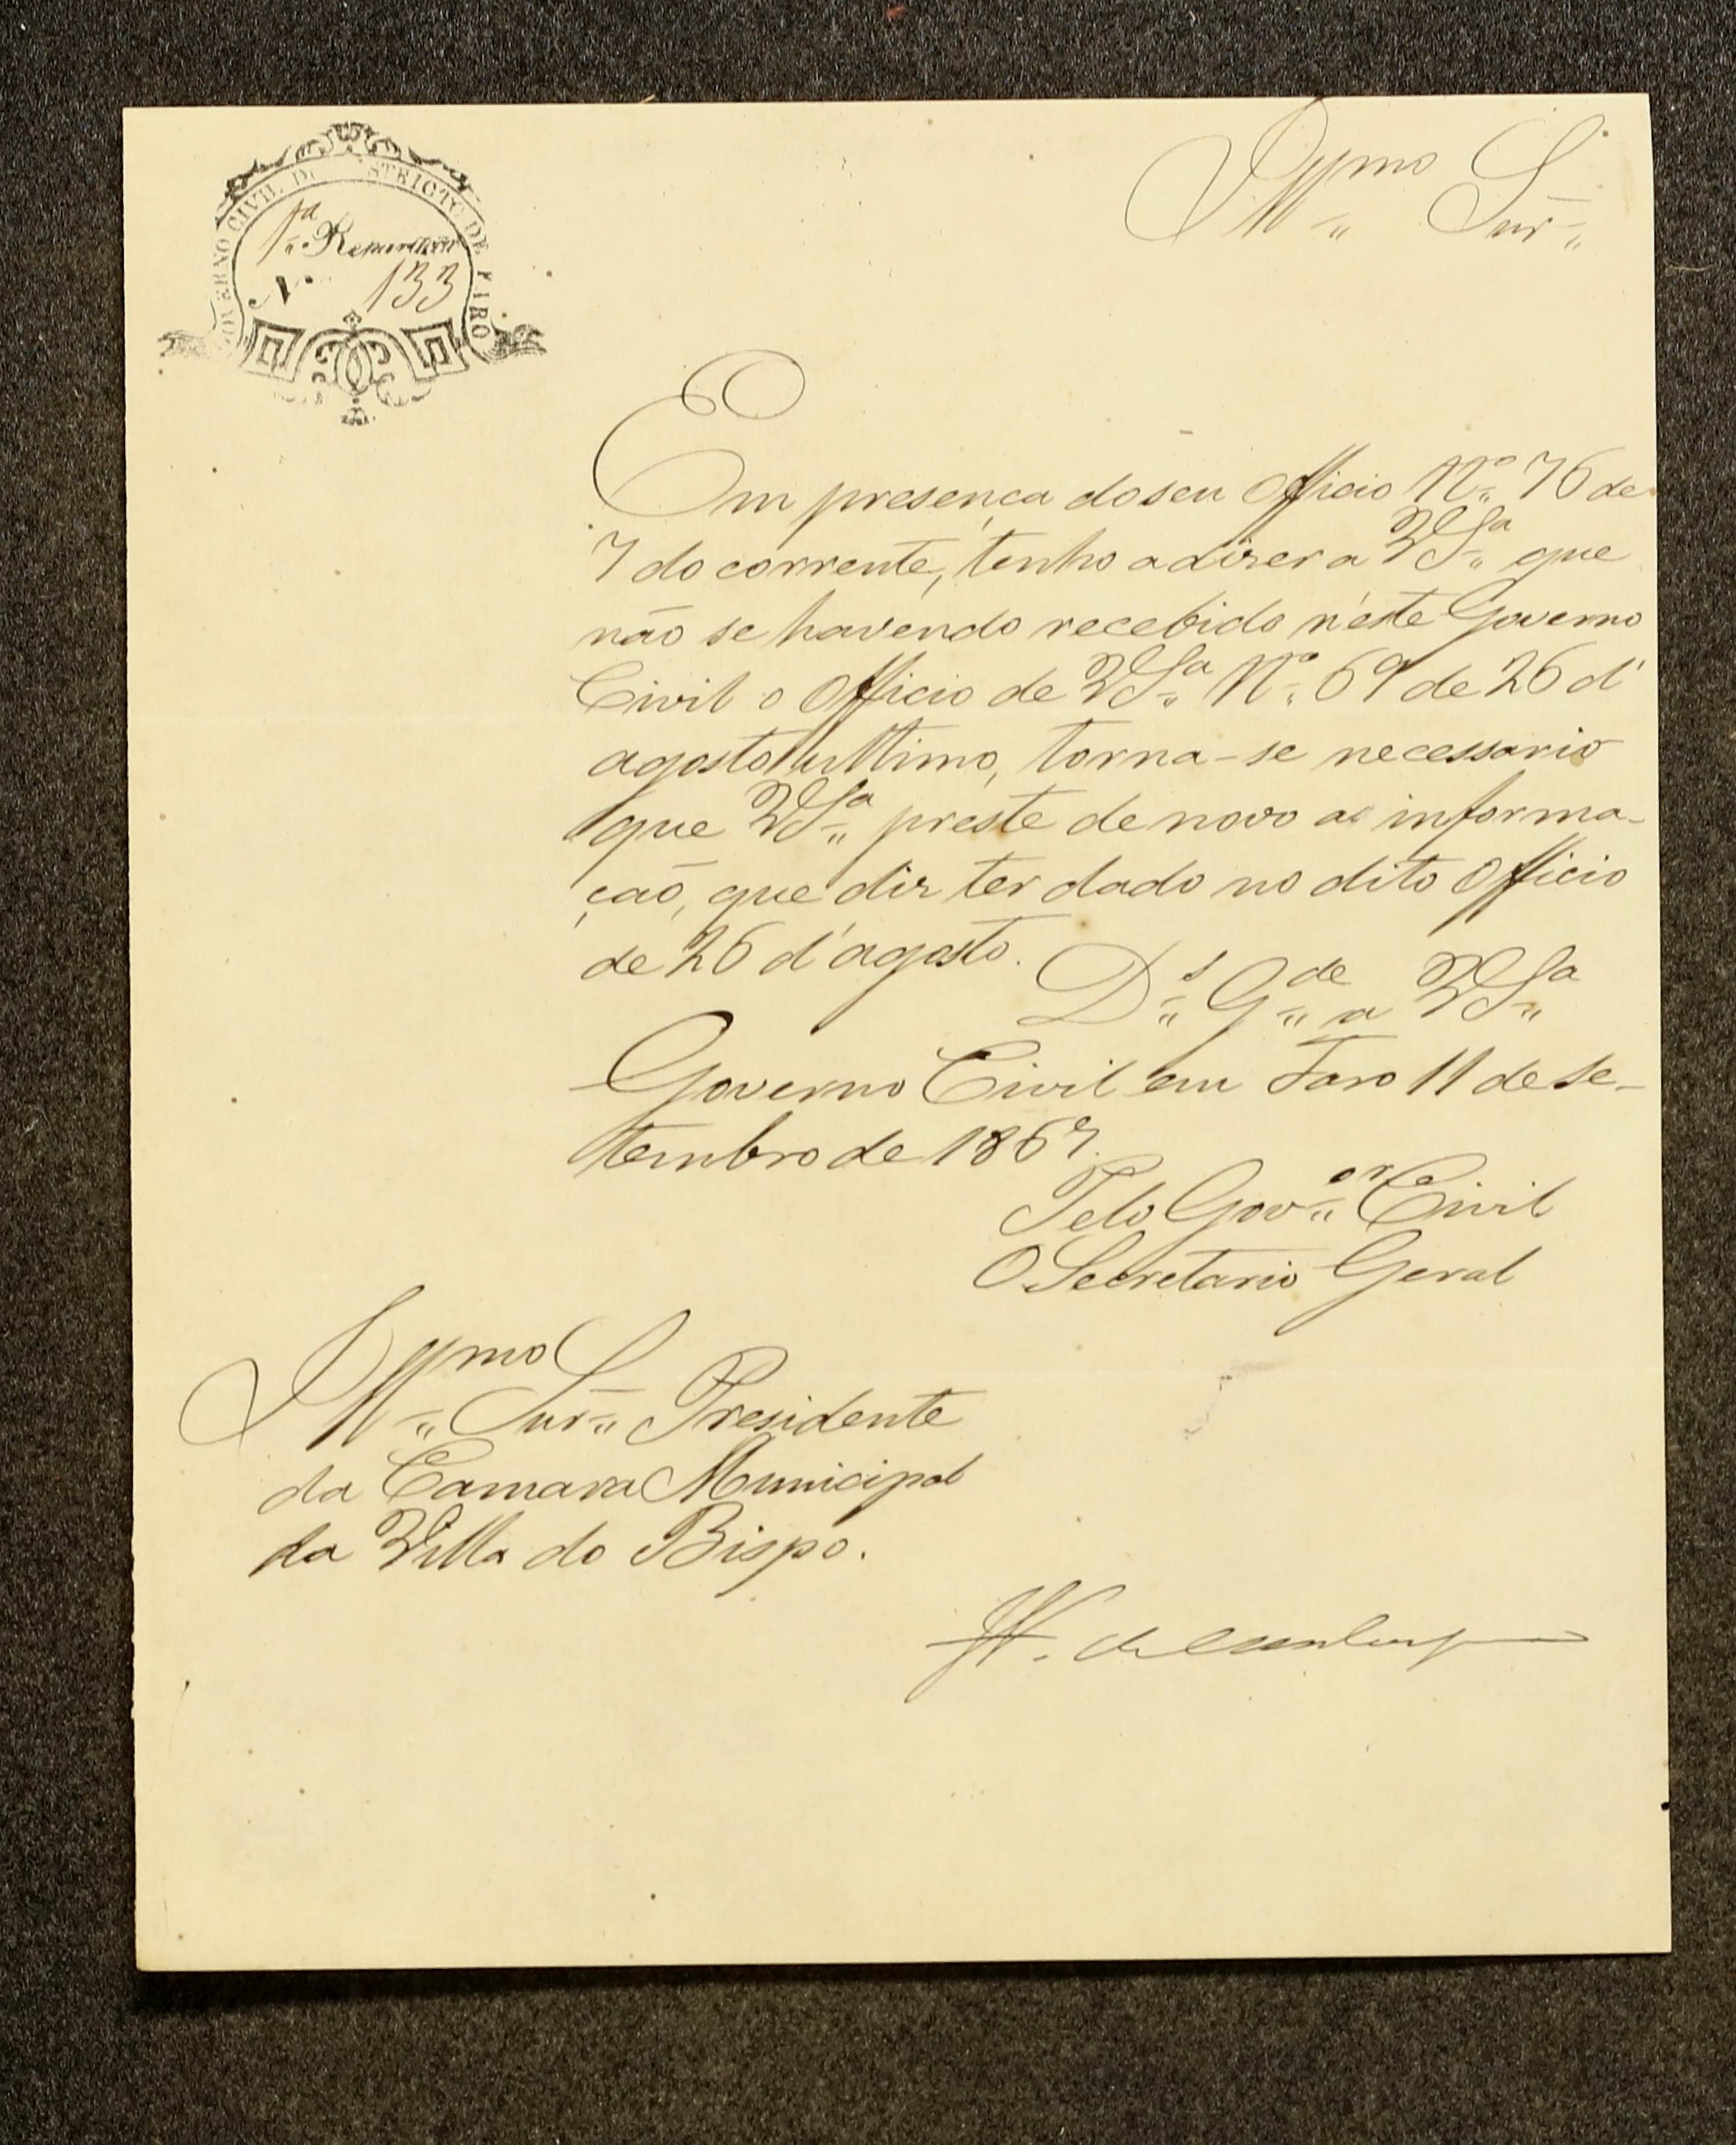 GOVERNO CIVIL DO DISTRICTO DE FARO
1.ª Repartição
N.º 133
Illmo Snr.
Em presença do seu Officio Nº 76 de
7 do corrente, tenho a dizer a V Sª que
não se havendo recebido n'este Governo
Civil o Officio de V Sª Nº 69 de 26 d'
agosto ultimo, torna-se necessario
que V Sª preste de novo a informa-
ção, que diz ter dado no dito Officio
de 26 d'agosto.
Ds Gde a V Sª
Governo Civil em Faro 11 de se-
tembro de 1867.
Pelo Govor Civil
O Secretario Geral
Illmo Snr Presidente
da Camara Municipal
da Villa do Bispo.